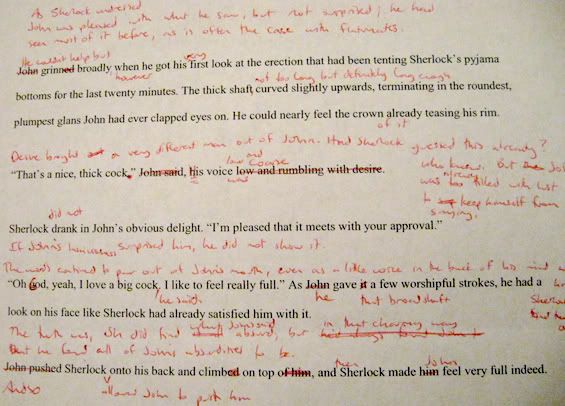 As Sherlock undressed
John was pleased with what he saw, but not surprised; he had
seen most of it before, as is often the case with flatmates.
He couldn't help but
very
John grinned broadly when he got his first look at the erection that had been tenting Sherlock's pyjama
however
not too long but definitely long enough
bottoms for the last twenty minutes. The thick shaft curved slightly upwards, terminating in the roundest,
plumpest glans John had ever clapped eyes on. He could nearly feel the crown already teasing his rim.
of it
Desire brought a very different man out of John. Had Sherlock guessed this already?
low and coarse
Who knew. But
"That's a nice, thick cock," John said, his voice low and rumbling with desire.
was
was already too filled with lust
to keep himself from
singing.
did not
Sherlock drank in John's obvious delight. "I'm pleased that it meets with your approval."
If John's surprised him, he did not show it.
The words continued to pour out of John's mouth, even as a little voice in the back of his mind
"Oh God, yeah, I love a big cock, I like to feel really full." As John gave it a few worshipful strokes, he had a
he said
he
that broad shaft
look on his face like Sherlock had already satisfied him with it.
The truth was, he did find absurd, but in that charming way
that he found all of John's absurdities to be.
John pushed Sherlock onto his back and climbed on top of him, and Sherlock made him feel very full indeed.
then
John
And so
allowed John to push him